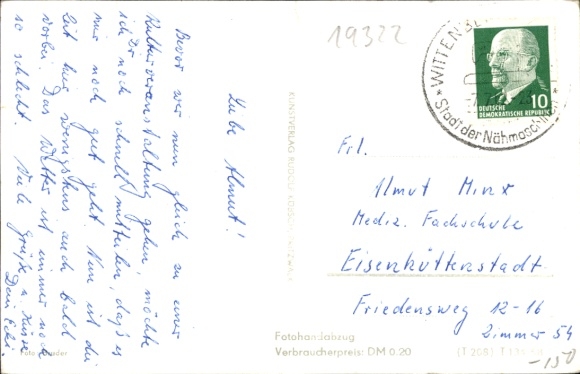 Liebe Almut!
Bevor wir nun gleich zu einer
Kulturveranstaltung gehen, möchte
ich Dir noch schnell mitteilen, daß es
mir noch gut geht. Nun ist die
Zeit hier wenigstens auch bald
vorbei. Das Wetter ist immer noch
so schlecht. Viele Grüße u. Küsse
Dein
Foto
KUNSTVERLAG
19322
WITTENBE
* Stadt der Nähmaschinen *
10
DEUTSCHE
DEMOKRATISCHE REPUBLIK
Frl.
Almut Minx
Mediz. Fachschule
Eisenhüttenstadt
Friedensweg 12-16
Zimmer 54
Fotohandabzug
Verbraucherpreis: DM 0.20
-150